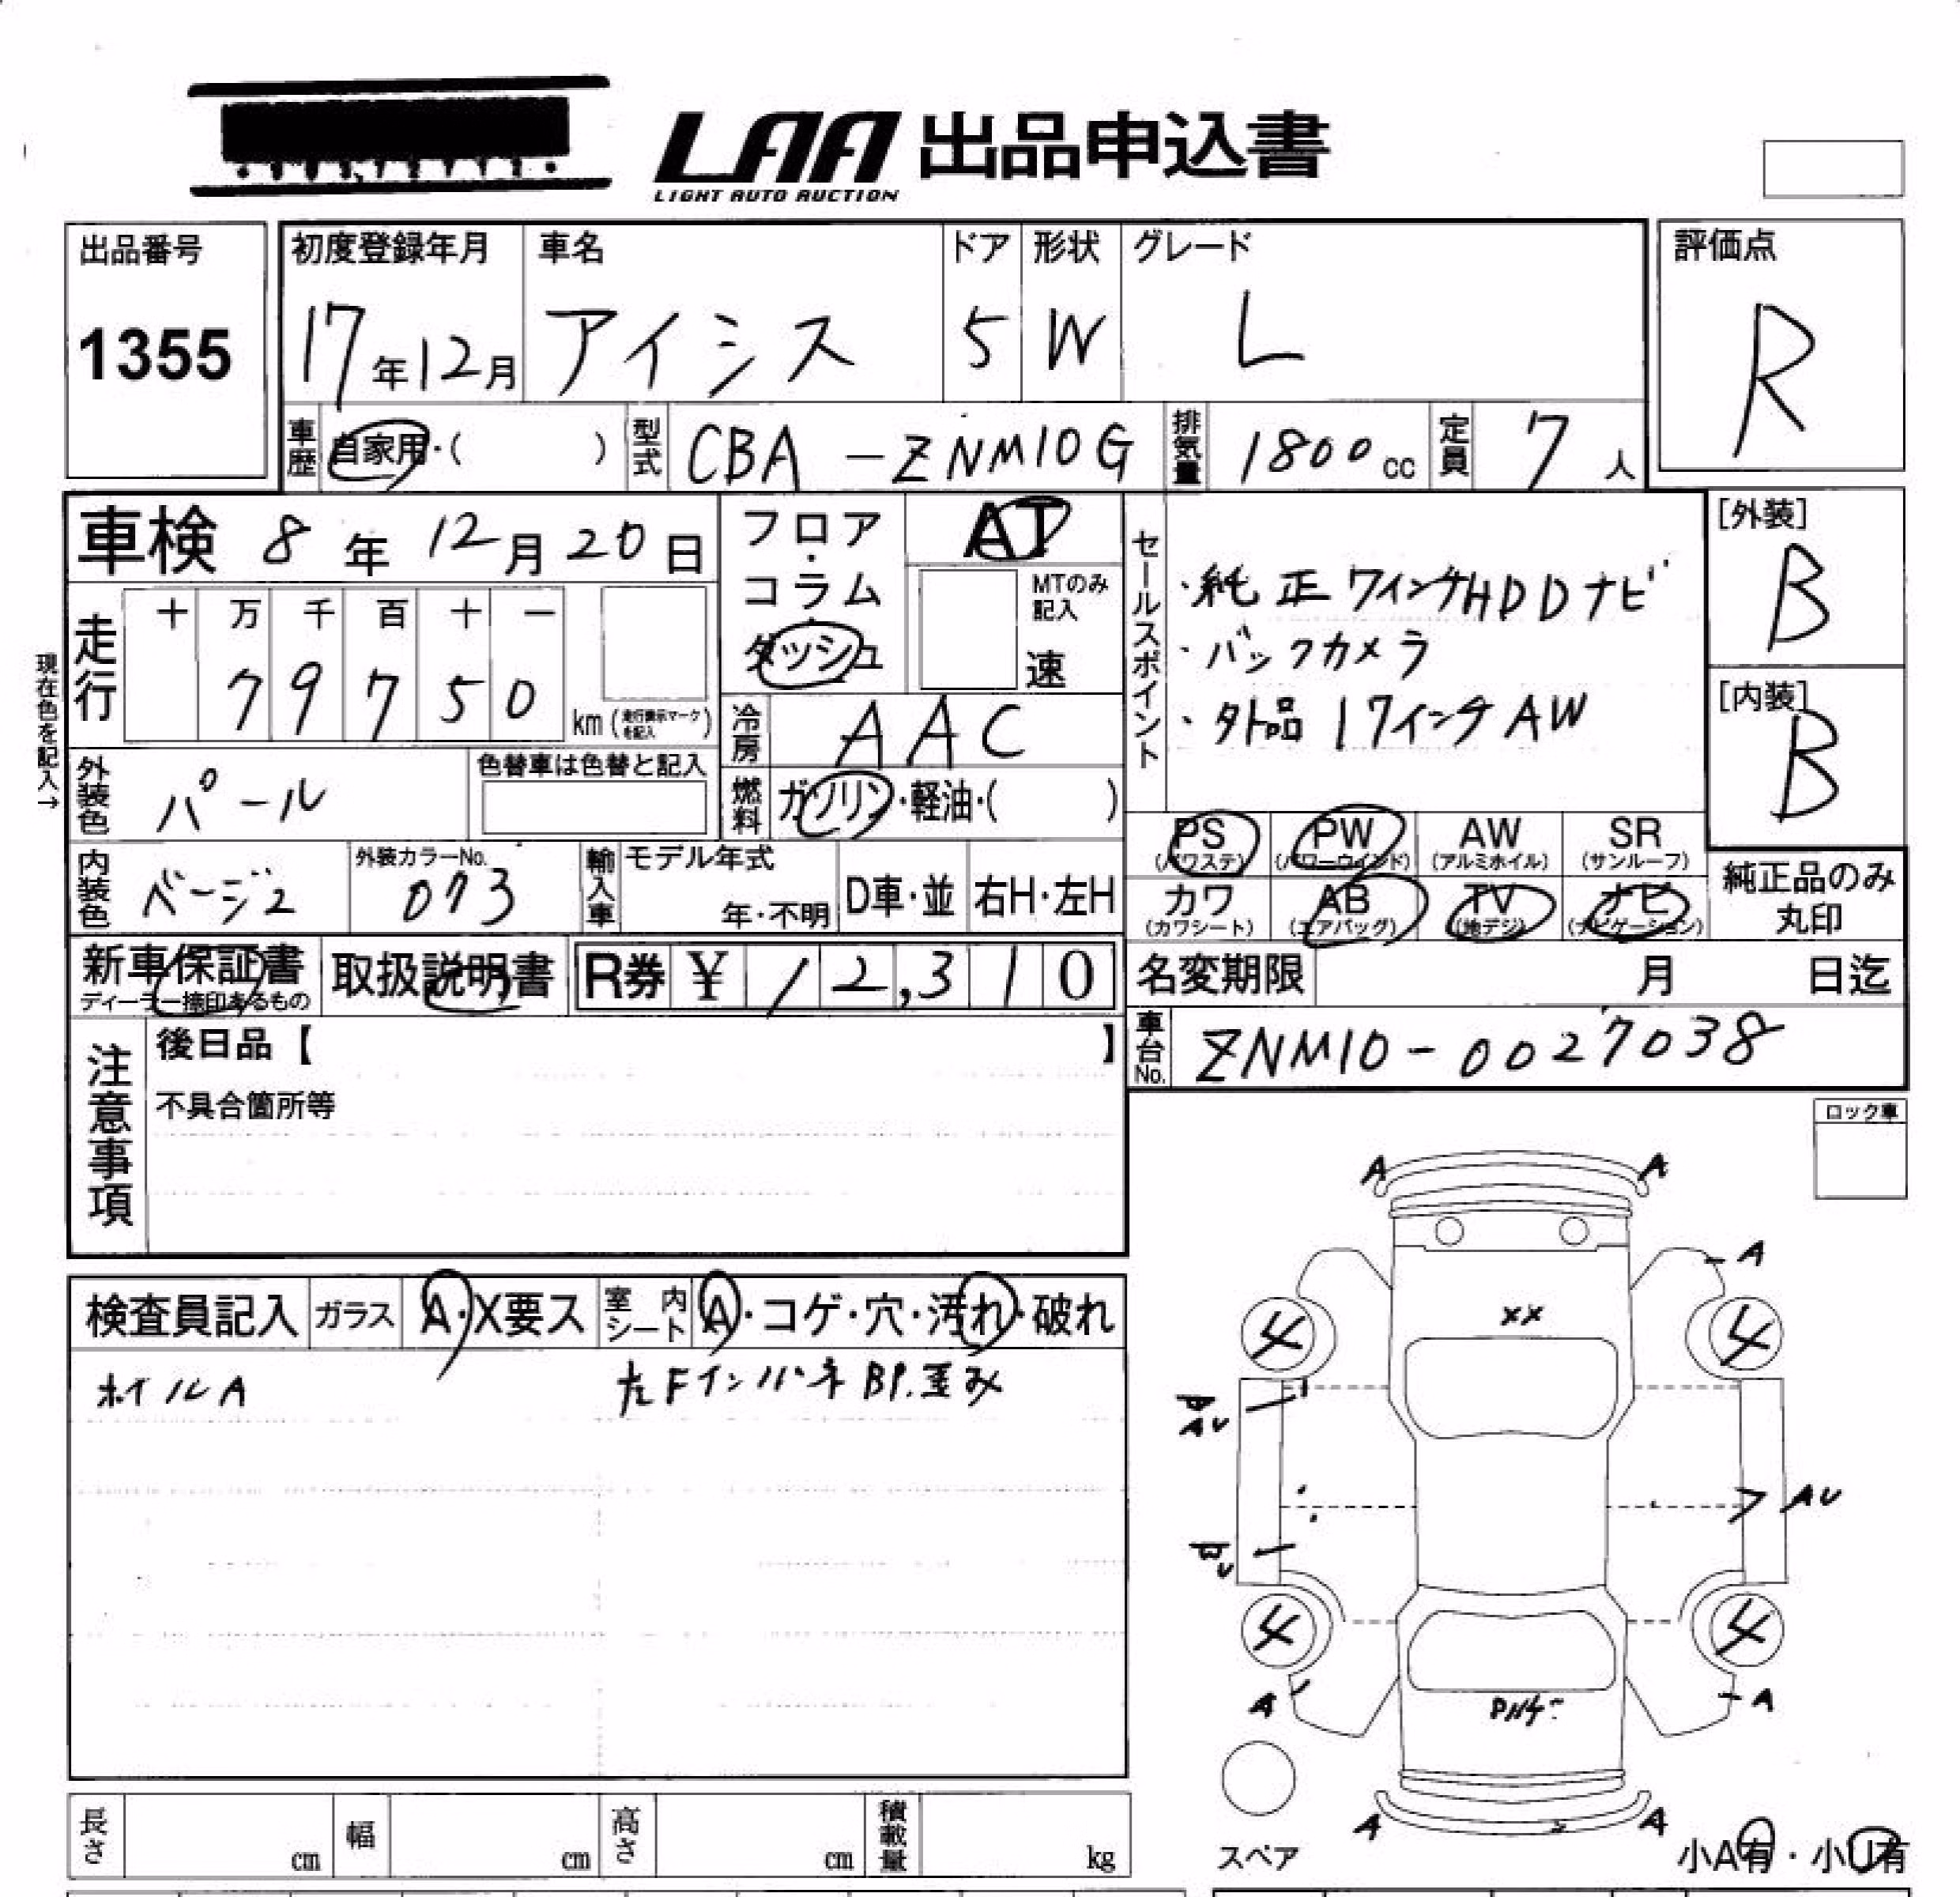 LAA 出品申込書
LIGHT AUTO AUCTION
出品番号
1355
初度登録年月
17年12月
車名
アイシス
ドア
5
形状
W
グレード
L
評価点
R
車歴
自家用・( )
型式
CBA-ZNM10G
排気量
1800cc
定員
7人
車検 8年12月20日
フロア・コラム・ダッシュ
AT
MTのみ記入
速
セールスポイント
・純正ワイングHDDナビ
・バックカメラ
・外品 17インチAW
[外装]
B
[内装]
B
現在色を記入→
走行
十 万 千 百 十 一
7 9 7 5 0 km (走行表示マークを記入)
冷房
AAC
外装色
パール
色替車は色替と記入
燃料
ガソリン・軽油・( )
PS (パワステ)
PW (パワーウインド)
AW (アルミホイル)
SR (サンルーフ)
内装色
ベージュ
外装カラーNo.
073
輸入車
モデル年式
年・不明
D車・並
右H・左H
カワ (カワシート)
AB (エアバッグ)
TV (地デジ)
ナビ (ナビゲーション)
純正品のみ丸印
新車保証書
ディーラー捺印あるもの
取扱説明書
R券 ¥ 12,310
名変期限 月 日迄
車台No.
ZNM10-0027038
注意事項
後日品【 】
不具合箇所等
ロック車
検査員記入
ガラス
A・X要ス
室内シート
A・コゲ・穴・汚れ・破れ
ホイルA
左FインパネBP.歪み
A A
A
XX
4 4
AU
AU
4 4
A A
A A
スペア
小A有・小U有
長さ cm
幅 cm
高さ cm
積載量 kg